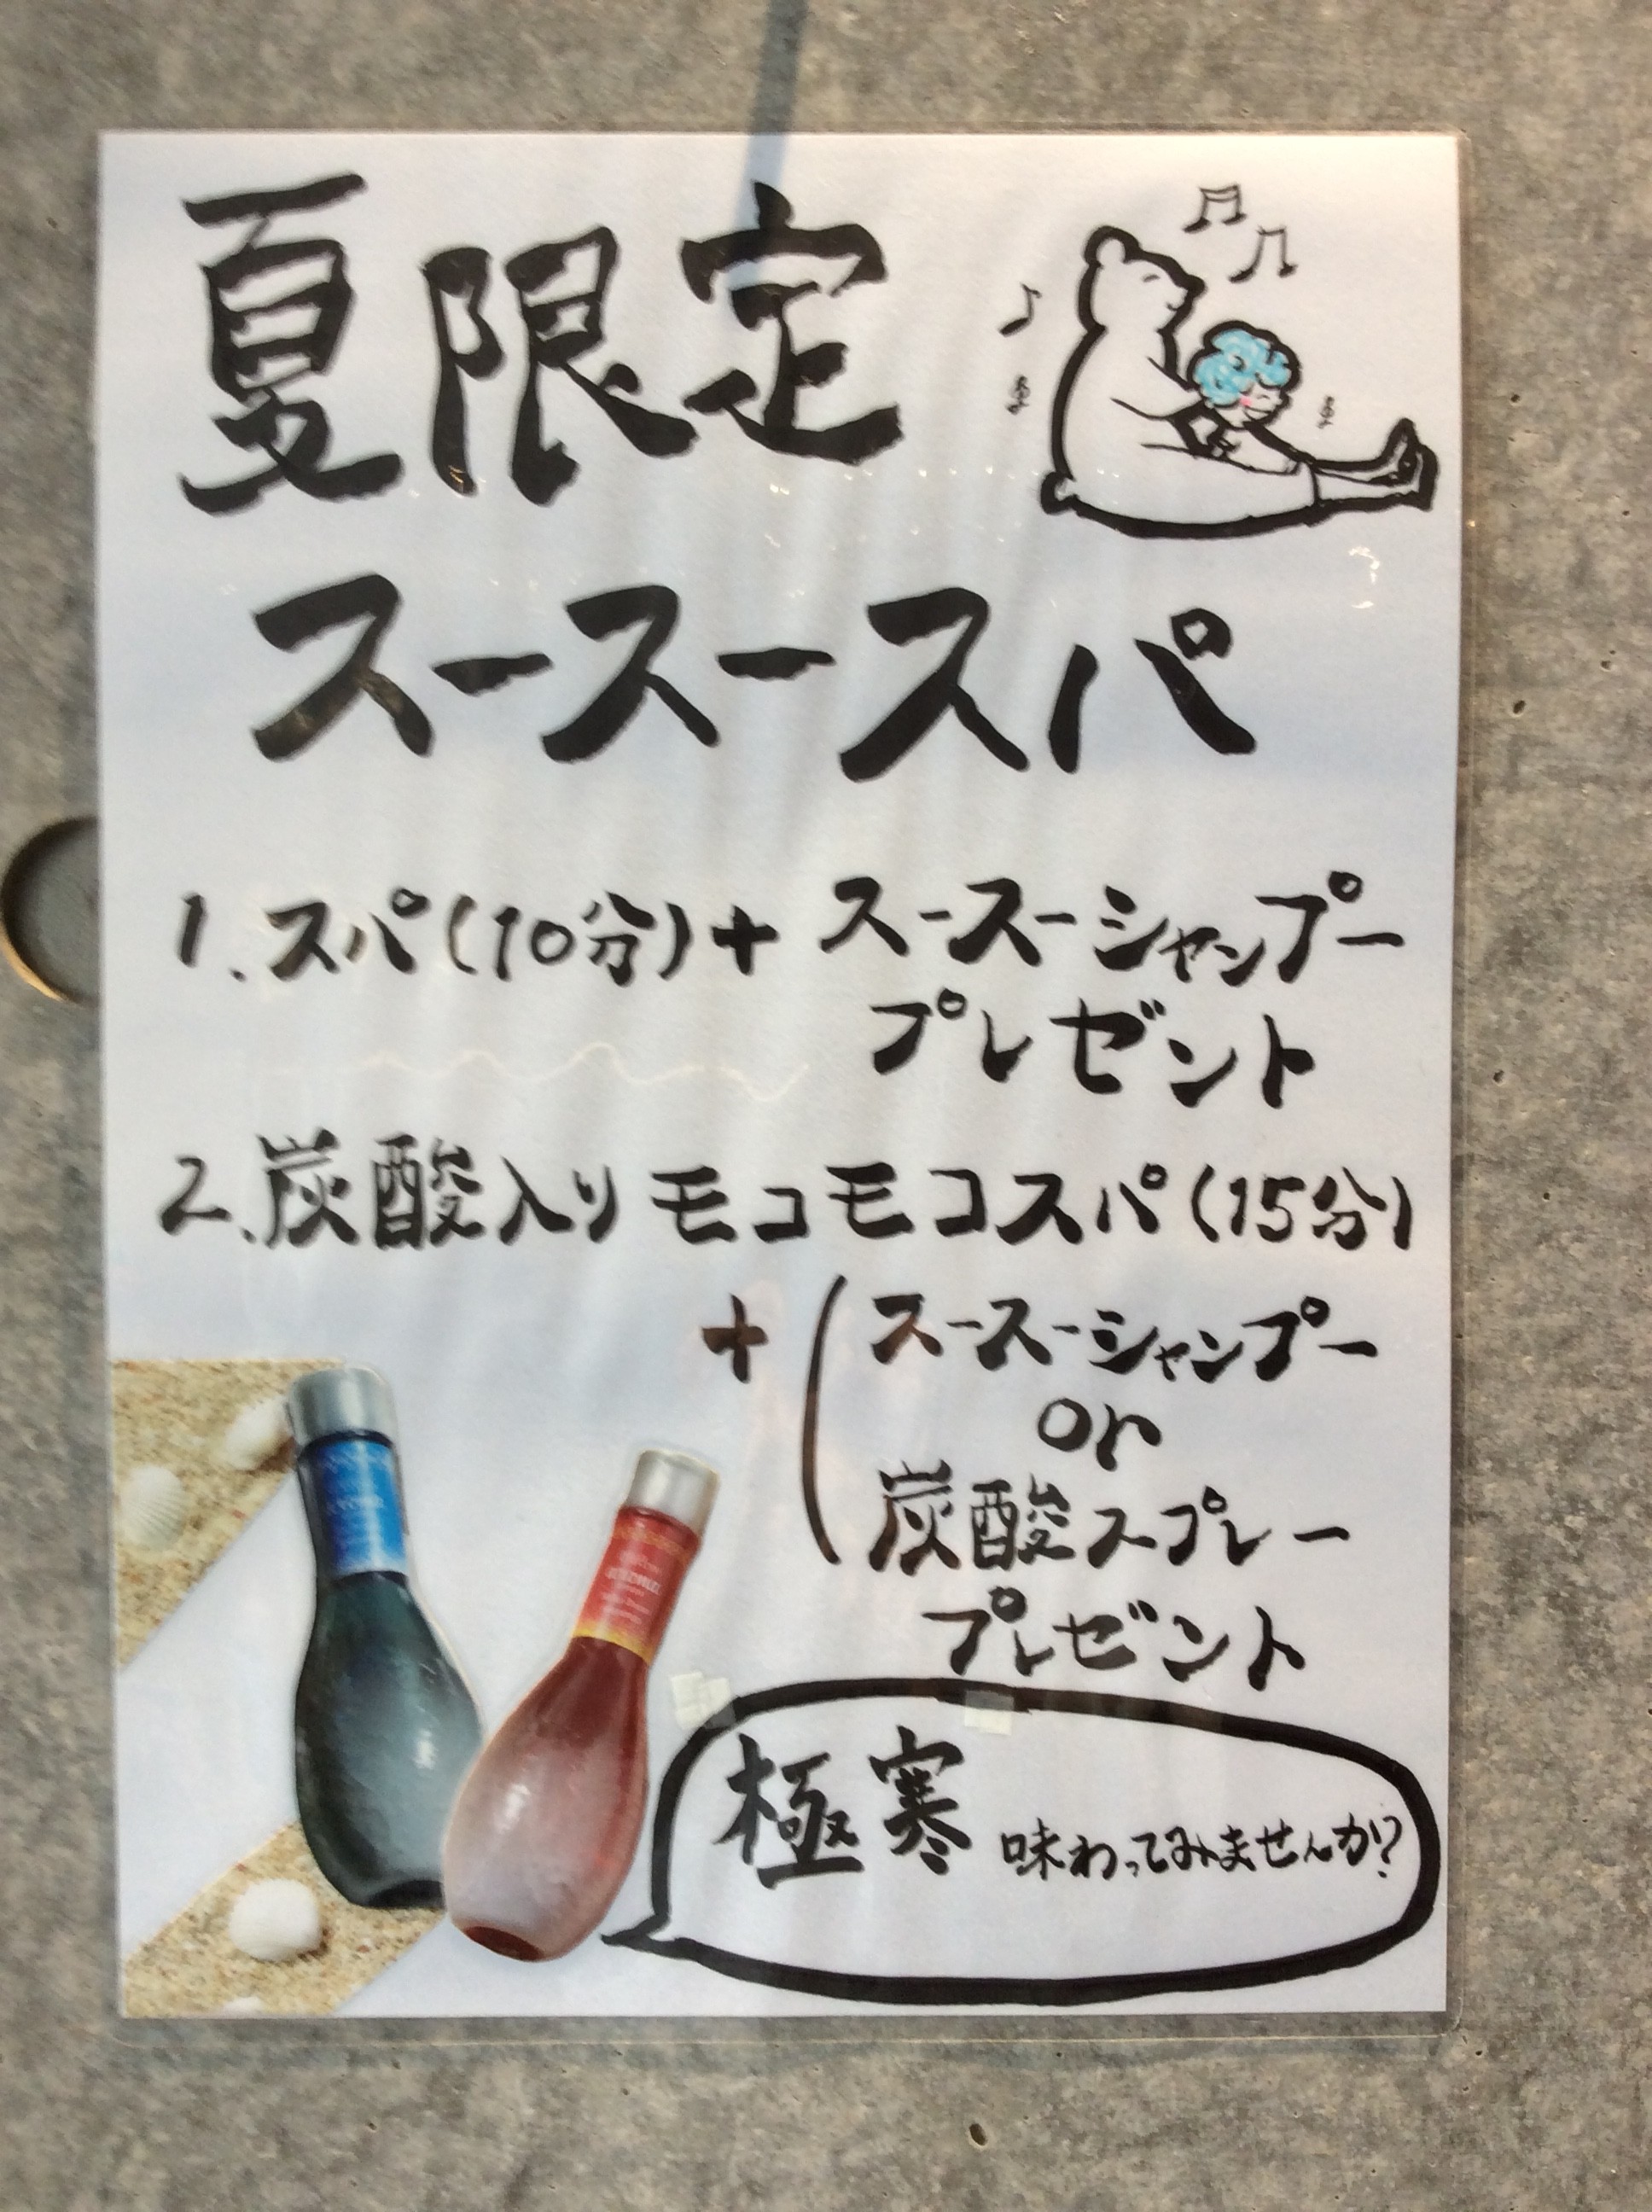 夏限定
スースースパ
1.スパ(10分)+スースーシャンプー
プレゼント
2.炭酸入りモコモコスパ(15分)
+(スースーシャンプー
or
炭酸スプレー
プレゼント
極寒 味わってみませんか?
aroma